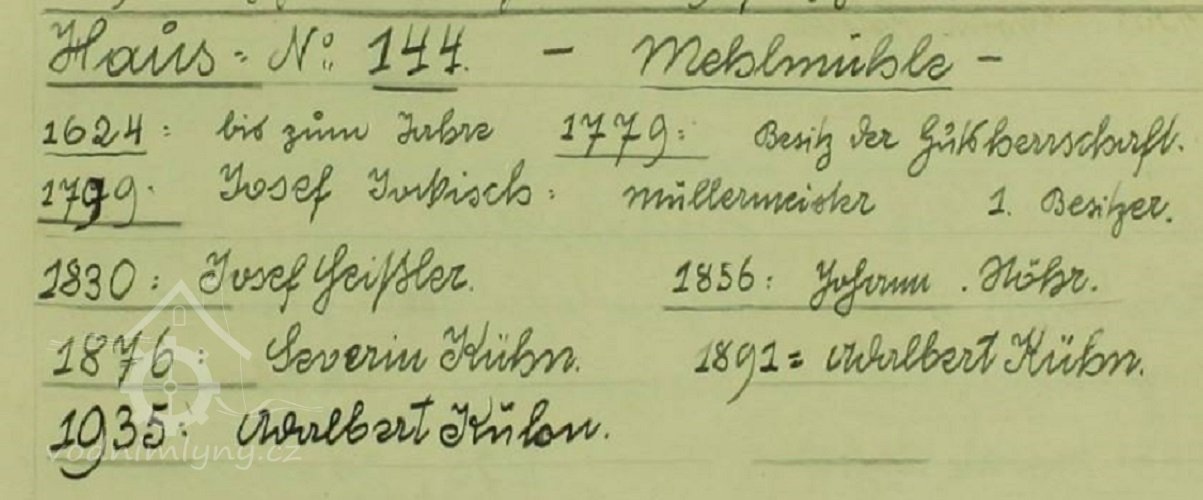 Haus=No: 144. – Mehlmühle –
1624: bis zum Jahre 1779: Besitz der Gutsherrschaft.
1779: Josef Jackisch: Müllermeister 1. Besitzer.
1830: Josef Geißler. 1856: Johann . Höhr.
1876: Severin Kühn. 1891= Adalbert Kühn.
1935: Adalbert Kühn.
vodnimlyny.cz